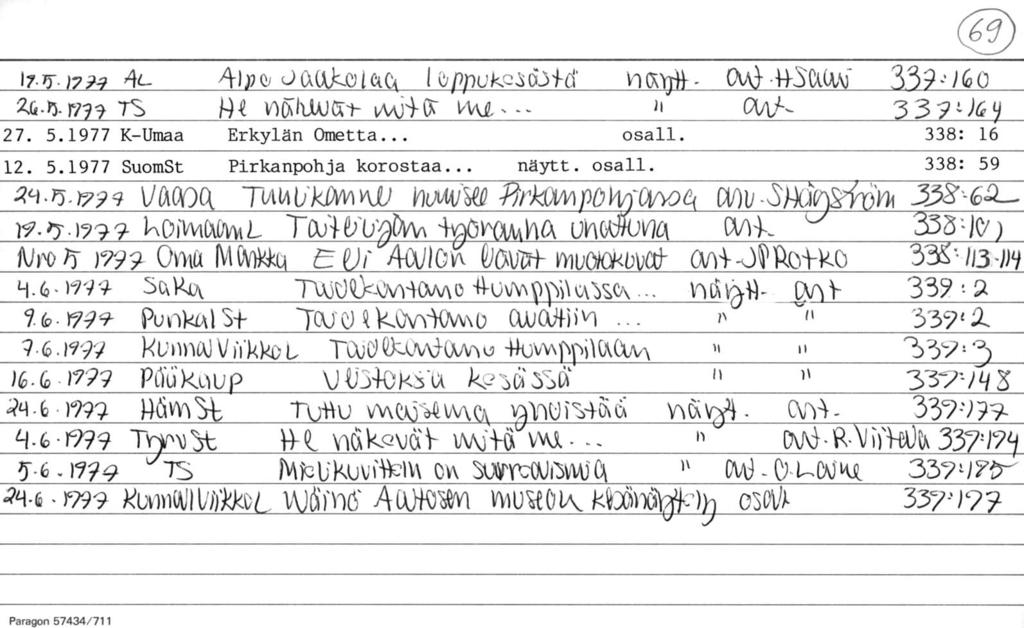 69
17.5.1977 AL Alpo Jaakolaa loppukesästä näytt. art. HSaari 337:160
26.5.1977 TS He näkevät mitä me... " art. 337:164
27. 5.1977 K-Umaa Erkylän Ometta... osall. 338: 16
12. 5.1977 SuomSt Pirkanpohja korostaa... näytt. osall. 338: 59
24.5.1977 Vaasa Tuulikannel humisee Pirkanpohjanssa arv. SHägström 338:62
19.5.1977 LoimaanL Taiteilijan työrauha uhattuna art. 338:101
Nro 5 1977 Oma Markka Eli Aallon lavat muotokuvat art JPRotko 338:113-114
4.6.1977 SaKa Taidekartano Humppilassa... näytt. art 339:2
9.6.1977 PunkalSt Taidekartano avattiin ... " " 339:2
7.6.1977 KunnallViikkoL Taidekartano Humppilaan " " 339:3
16.6.1977 Pääkaup Veistoksia kesässä " " 339:148
24.6.1977 HämSt Tuttu maisema yhdistää näytt. art. 339:177
4.6.1977 TyrvSt He näkevät mitä me... " art. R. Viitela 339:174
5.6.1977 TS Mielikuvittelu on surrealismia " art. O.Laine 339:185
24.6.1977 KunnallViikkoL Wäinö Aaltosen museon kesänäyttely osall 339:177
Paragon 57434/711